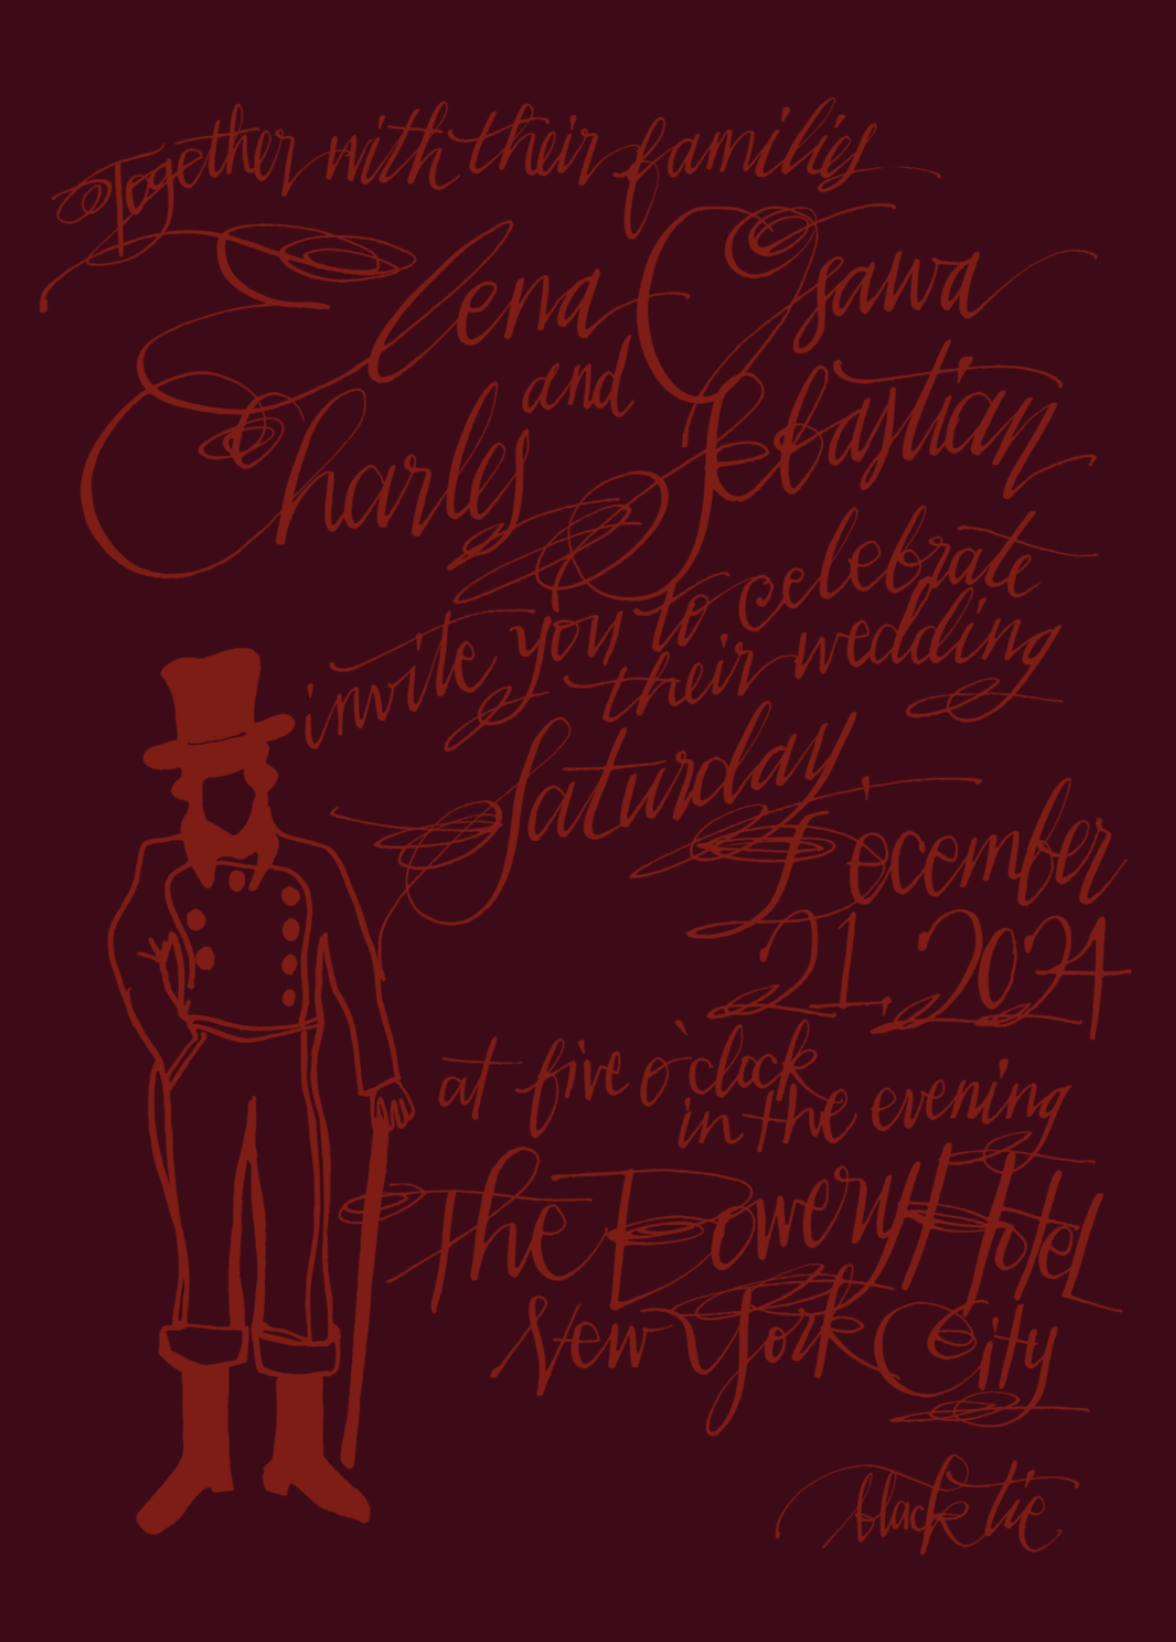 Together with their families
Elena Osawa
and
Charles Sebastian
invite you to celebrate
their wedding
Saturday,
December
21, 2024
at five o'clock
in the evening
The Bowery Hotel
New York City
black tie